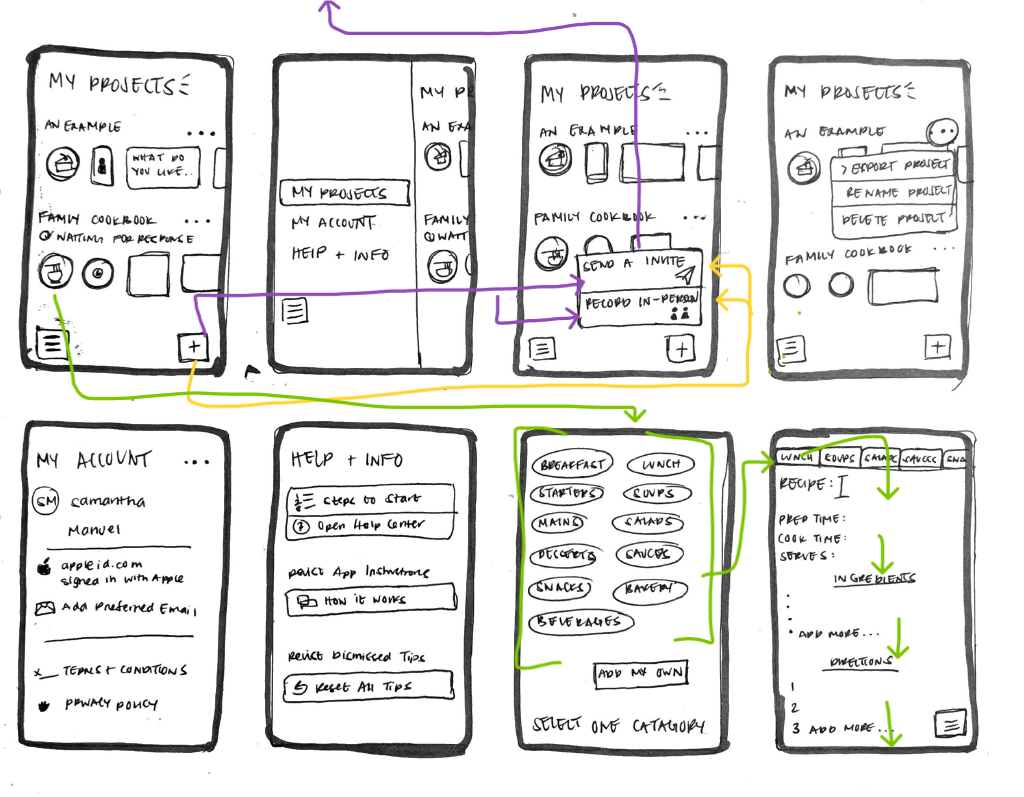 MY PROJECTS
AN EXAMPLE ...
WHAT DO
YOU LIKE...
FAMILY COOKBOOK ...
WAITING FOR RESPONSE
+
MY PR
AN EXA
MY PROJECTS
MY ACCOUNT
FAMILY
WAIT
HELP + INFO
MY PROJECTS
AN EXAMPLE ...
FAMILY COOKBOOK ...
SEND A INVITE
RECORD IN-PERSON
+
MY PROJECTS
AN EXAMPLE ...
> EXPORT PROJECT
RENAME PROJECT
DELETE PROJECT
FAMILY COOKBOOK ...
+
MY ACCOUNT ...
SM Samantha
Manuel
appleid.com
signed in with Apple
Add Preferred Email
TERMS + CONDITIONS
PRIVACY POLICY
HELP + INFO
Steps to Start
? Open Help Center
Revisit App Instructions
How it works
Revisit Dismissed Tips
Reset All Tips
BREAKFAST LUNCH
STARTERS SOUPS
MAINS SALADS
DESSERTS SAUCES
SNACKS BAKERY
BEVERAGES
ADD MY OWN
SELECT ONE CATAGORY
LUNCH SOUPS SALADS SAUCES SNA
RECIPE:
PREP TIME:
COOK TIME:
SERVES:
INGREDIENTS
• ADD MORE...
DIRECTIONS
1
2
3 ADD MORE...